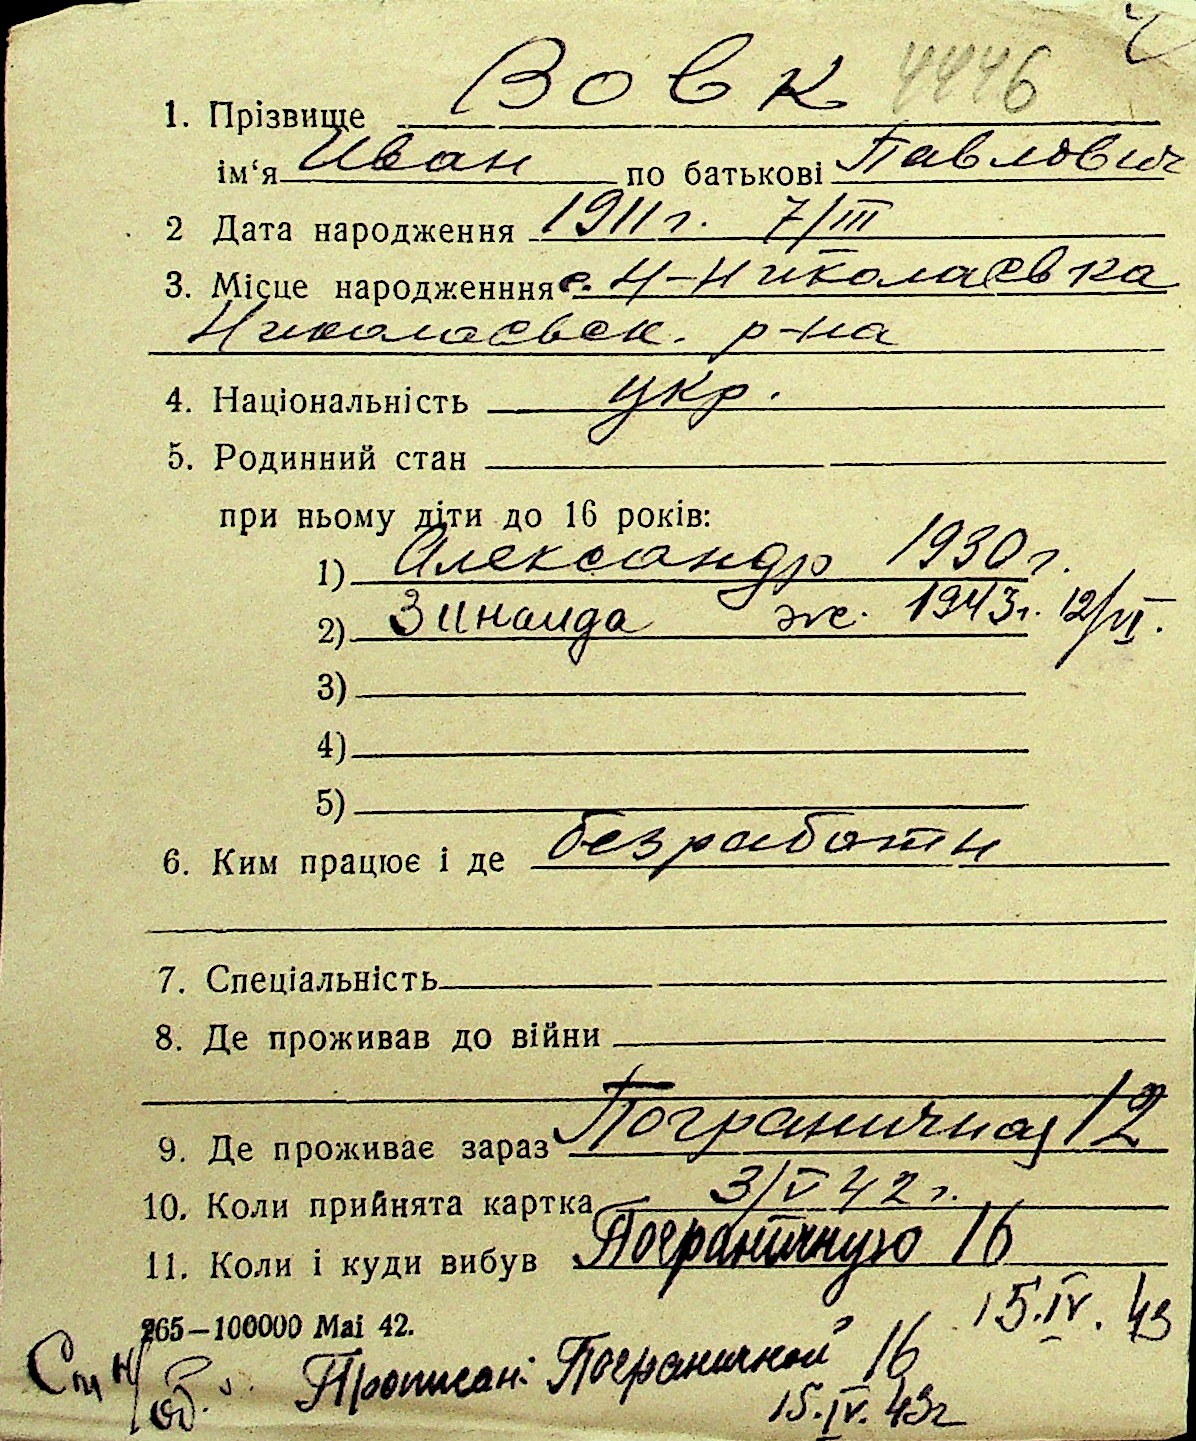 4446
1. Прізвище Вовк
ім‘я Иван по батькові Павлович
2 Дата народження 1911 г. 7/III
3. Місце народженння с. Н-Николаевка
Николаевск. р-на
4. Національність укр.
5. Родинний стан
при ньому діти до 16 років:
1) Александр 1930 г.
2) Зинаида ж. 1943г. 12/VI.
3)
4)
5)
6. Ким працює і де безработн
7. Спеціальність
8. Де проживав до війни
9. Де проживає зараз Пограничная 12
10. Коли прийнята картка 3/V 42 г.
11. Коли і куди вибув Пограничную 16
15.IV. 43
265—100000 Mai 42.
Прописан: Пограничной 16
15.IV. 43г